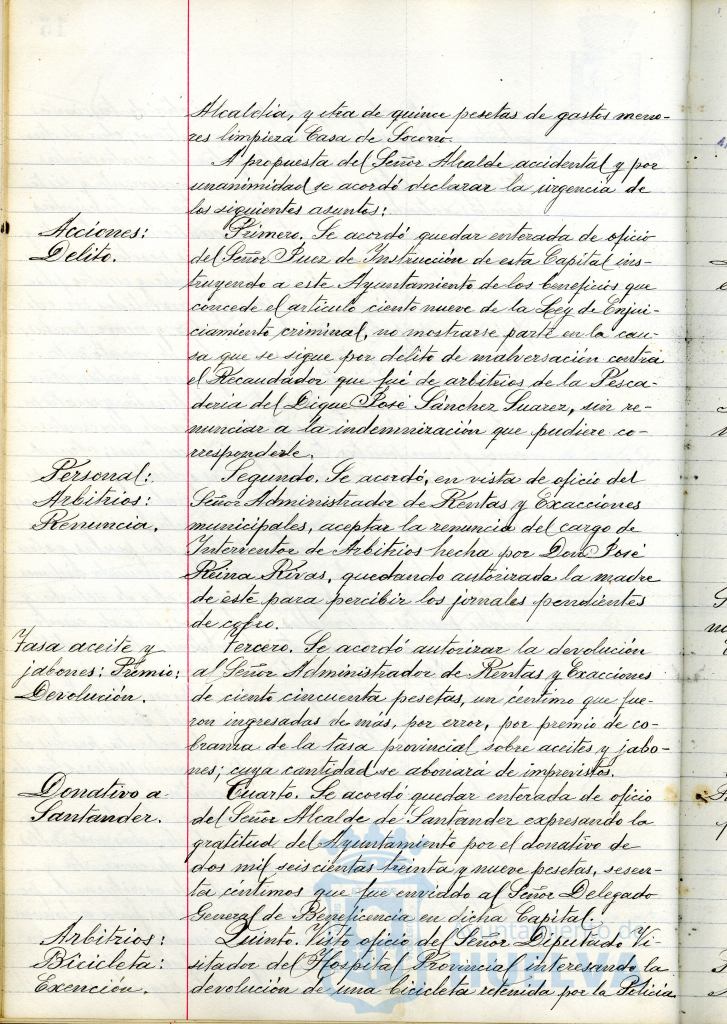 Alcaldía, y otra de quince pesetas de gastos meno-
res limpieza Casa de Socorro.
A propuesta del Señor Alcalde accidental y por
unanimidad se acordó declarar la urgencia de
los siguientes asuntos:
Acciones:
Delito.
Primero. Se acordó quedar enterada de oficio
del Señor Juez de Instrucción de esta Capital ins-
truyendo a este Ayuntamiento de los beneficios que
concede el artículo ciento nueve de la Ley de Enjui-
ciamiento criminal, no mostrarse parte en la cau-
sa que se sigue por delito de malversación contra
el Recaudador que fué de arbitrios de la Pesca-
dería del Dique José Sánchez Suarez, sin re-
nunciar a la indemnización que pudiere co-
rresponderle.
Personal:
Arbitrios:
Renuncia.
Segundo. Se acordó, en vista de oficio del
Señor Administrador de Rentas y Exacciones
municipales, aceptar la renuncia del cargo de
Interventor de Arbitrios hecha por Don José
Reina Rivas, quedando autorizada la madre
de éste para percibir los jornales pendientes
de cobro.
Tasa aceite y
jabones: Premio:
Devolución.
Tercero. Se acordó autorizar la devolución
al Señor Administrador de Rentas y Exacciones
de ciento cincuenta pesetas, un céntimo que fue-
ron ingresadas de mas, por error, por premio de co-
branza de la tasa provincial sobre aceites y jabo-
nes; cuya cantidad se abonará de imprevistos.
Donativo a
Santander.
Cuarto. Se acordó quedar enterada de oficio
del Señor Alcalde de Santander expresando la
gratitud del Ayuntamiento por el donativo de
dos mil seiscientas treinta y nueve pesetas, sesen-
ta centimos que fue enviado al Señor Delegado
General de Beneficencia en dicha Capital.
Arbitrios:
Bicicleta:
Exención.
Quinto. Visto oficio del Señor Diputado Vi-
sitador del Hospital Provincial interesando la
devolución de una bicicleta retenida por la Policía
Ayuntamiento de
HUELVA